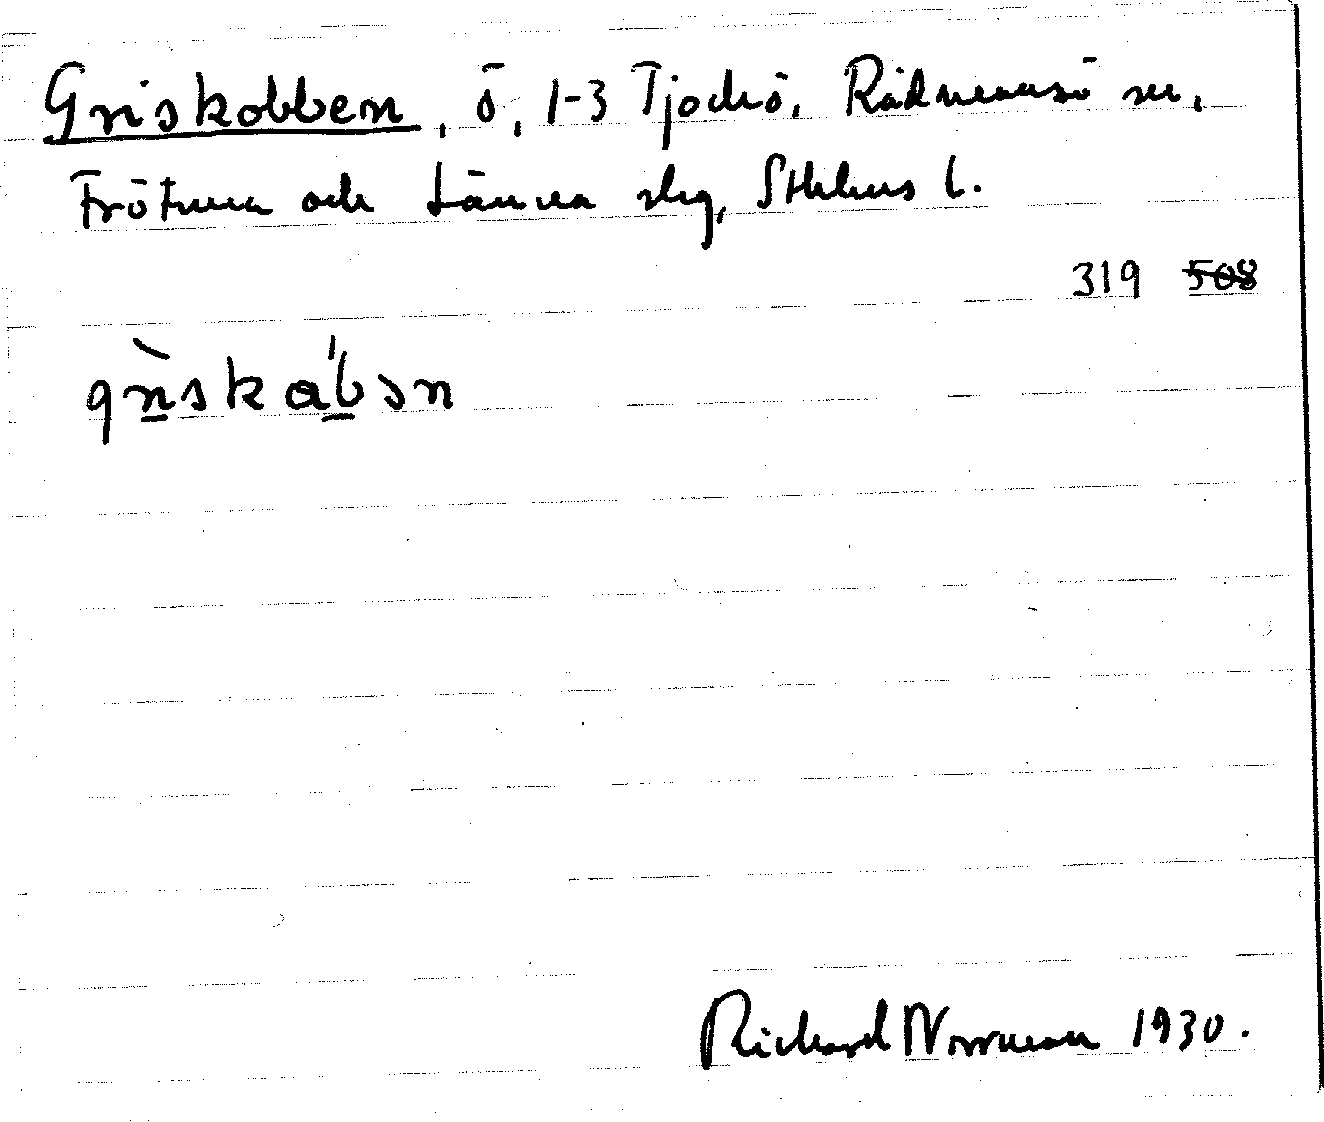 Griskobben, ö, 1-3 Tjockö, Rådmansö sn,
Frötuna och Länna skg, Sthlms l.
319 508
grìskáb̲ən
Richard Norrman 1930.